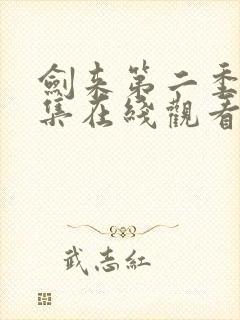 劍来第二季
集在綫觀看
武志紅